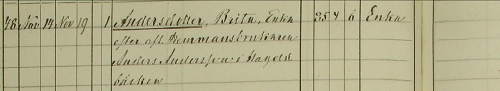 48 Nov. 14 Nov. 19 1 Andersdotter, Brita, Enka 85 4 6 Enka
efter afl. Hemmansbrukaren
Anders Andersson i
bäcken